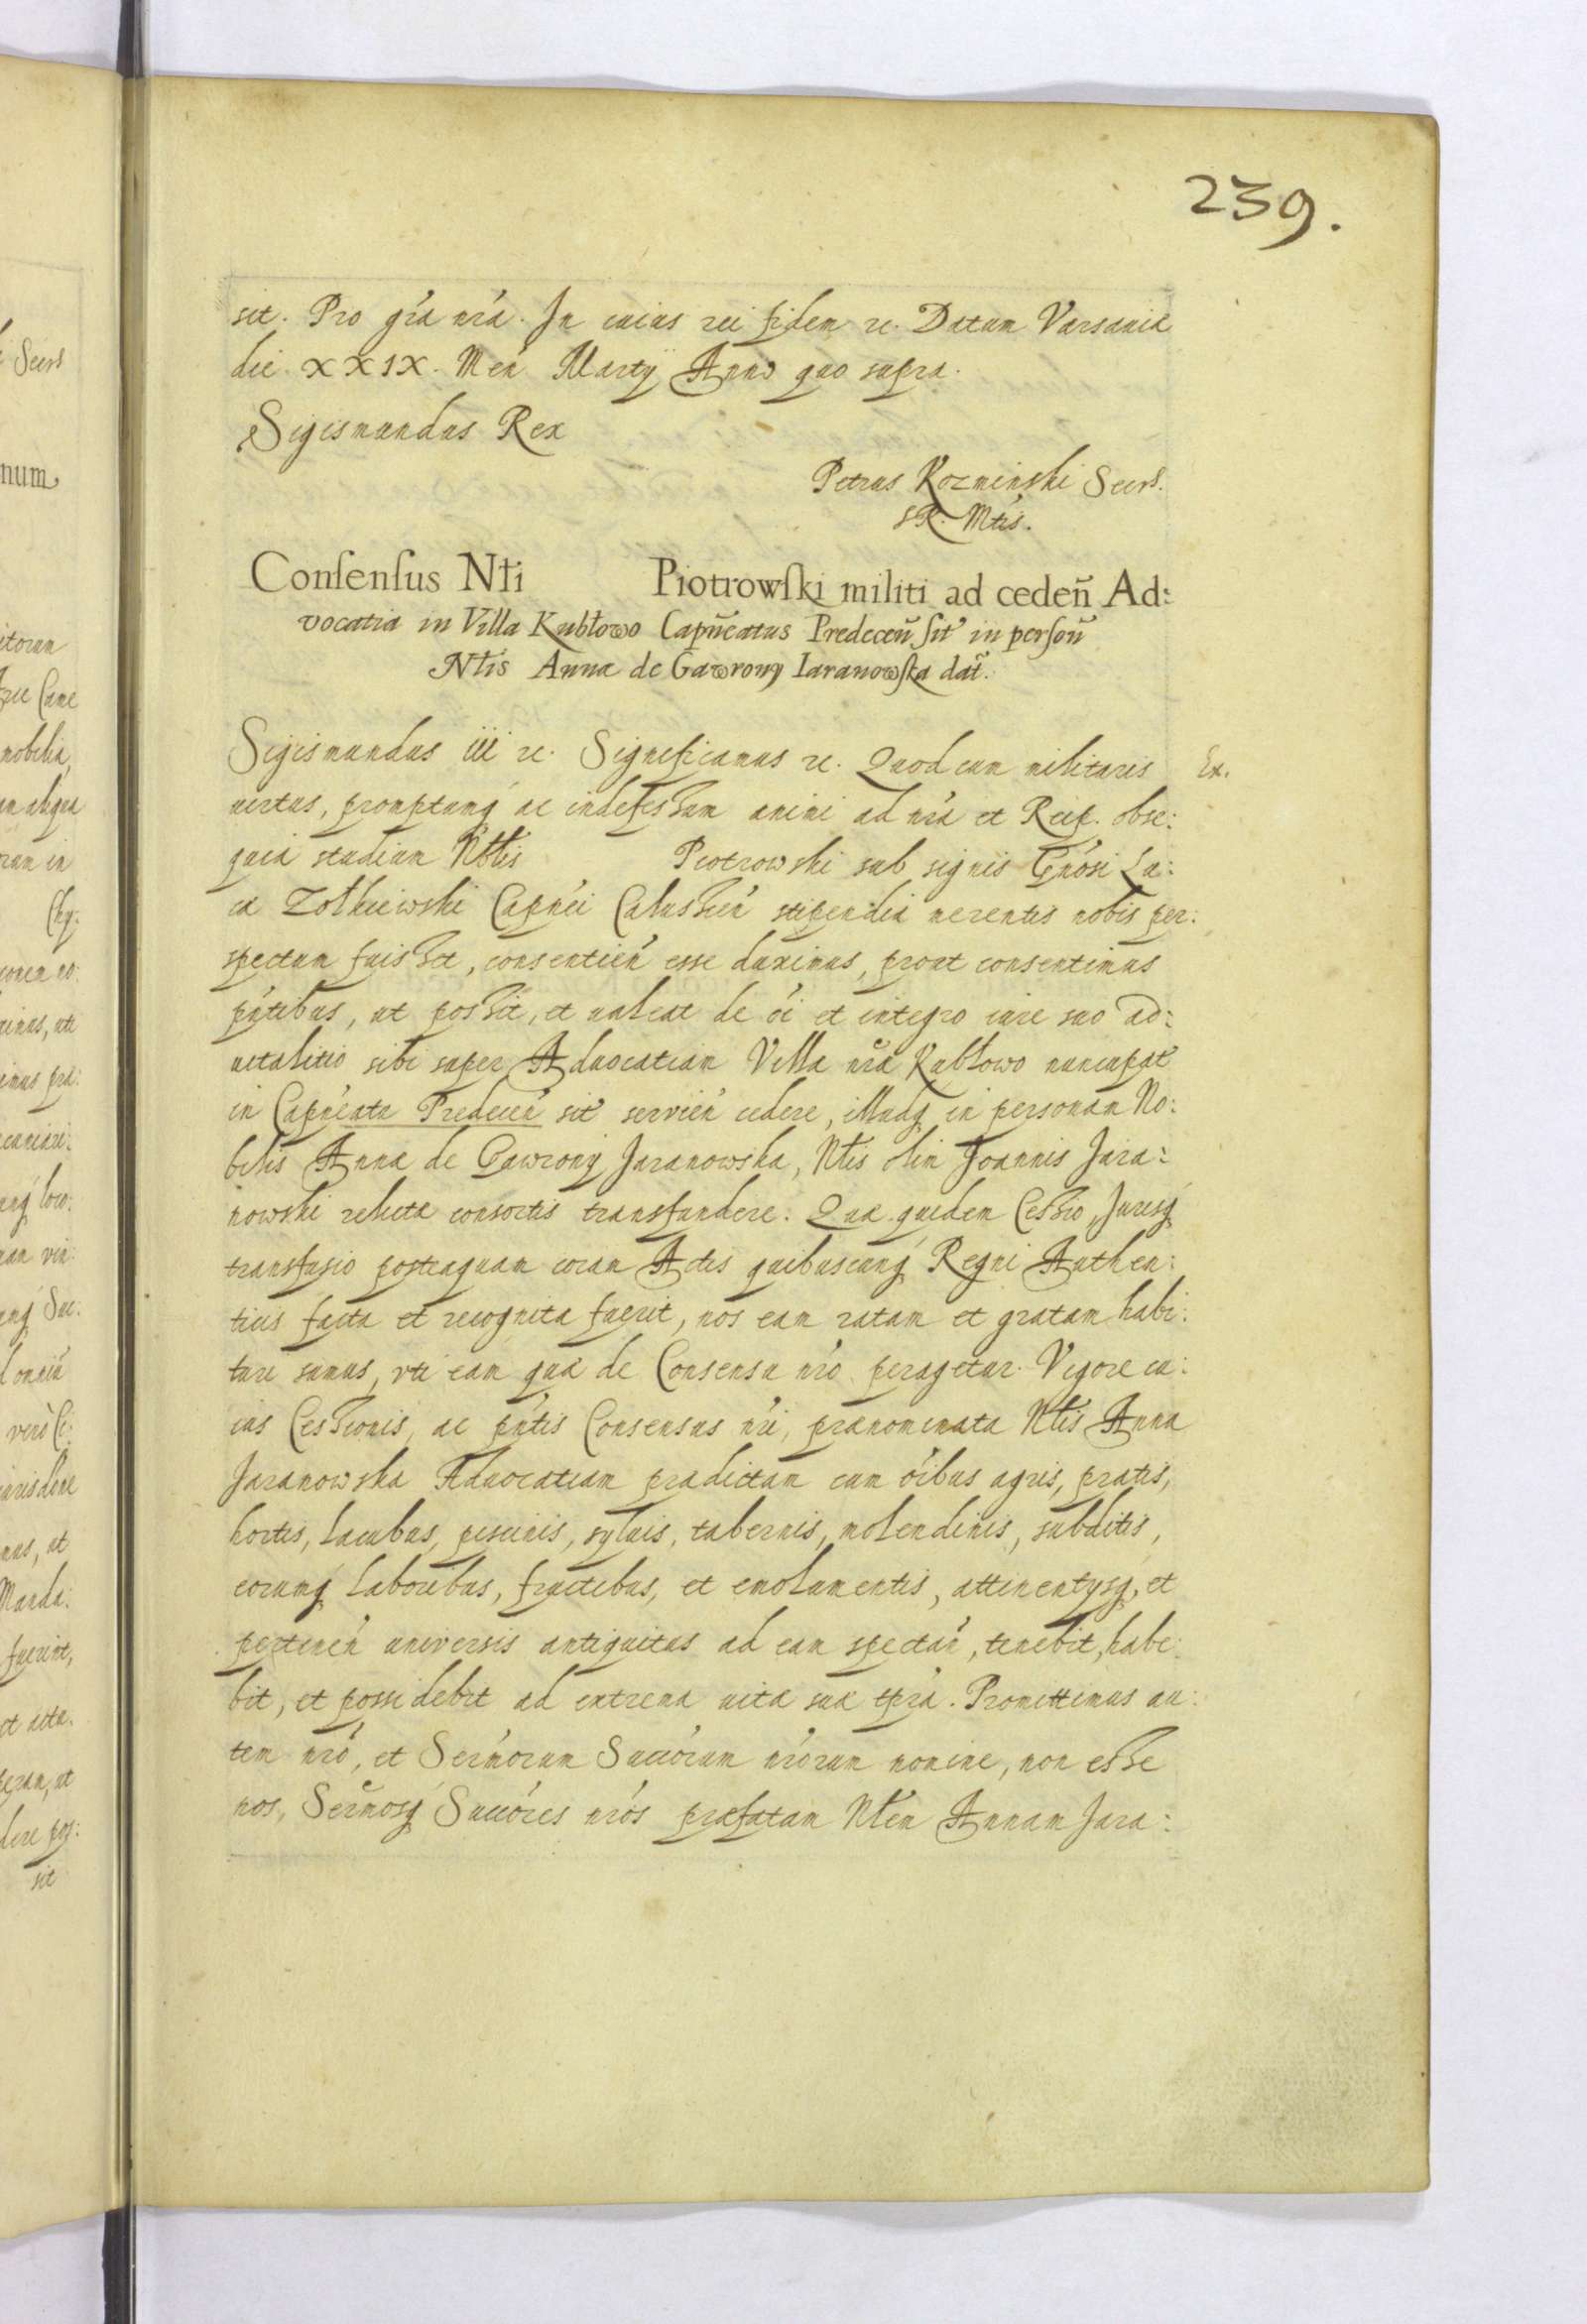 239.
sit. Pro gr̃a nr̃a. In cuius rei fidem etc. Datum Varsauiæ
die. XXIX. Men̄ Martÿ Anno quo supra.
Sigismundus Rex
Petrus Kozminski Secrs.
SR. Mtis.
Conſenſus Nłi Piotrowſki militi ad ceden̄ Ad:
vocatia in Villa Kubłowo Capn̄eatus Predecen̄ ſit' in perſon̄
Nłis Annæ de Gawrony Iaranowſka dat̄.
Sigismundus iii etc. Significamus etc. Quod cum militaris Ex.
uirtus, promptumq́ ac indefessum animi ad nr̃a et Reip. obse:
quia studium Nbłis Piotrowski sub signis Gn̄osi Lu:
cæ Zołkiewski Capn̄ei Calussien̄ stipendia merentis nobis per:
spectum fuisset, consentien̄ esse duximus, prout consentimus
pn̄tibus, ut possit, et ualeat de ōi et integro iure suo ad:
uitalitio sibi super Aduocatiam Villæ nr̃æ Kubłowo nuncupat̄
in Capn̄eatu Predecen̄ sit' servien̄ cedere, illudq́ in personam No:
bilis Annæ de Gawrony Jaranowska, Nłis olim Joannis Jara:
nowski relictæ consortis transfundere. Quæ quidem Cessio, Jurisq́
transfusio postquam coram Actis quibuscunq́ Regni Authen:
ticis facta et recognita fuerit, nos eam ratam et gratam habi:
turi sumus, vti eam quæ de Consensu nr̃o peragetur. Vigore cu:
ius Cessionis, ac pn̄tis Consensus nr̃i, prænominata Nłis Anna
Jaranowska Aduocatiam prædictam cum ōibus agris, pratis,
hortis, lacubus, piscinis, syluis, tabernis, molendinis, subditis,
eorumq́ laboribus, fructibus, et emolumentis, attinentÿsq́, et
pertinen̄ universis antiquitus ad eam spectan̄, tenebit, habe:
bit, et possidebit ad extrema uitæ suæ tp̄ra. Promittimus au:
tem nr̃o, et Ser̄morum Succōrum nr̃orum nomine, non esse
nos, Ser̄mosq́ Succōres nr̃os præfatam Nłem Annam Jara: